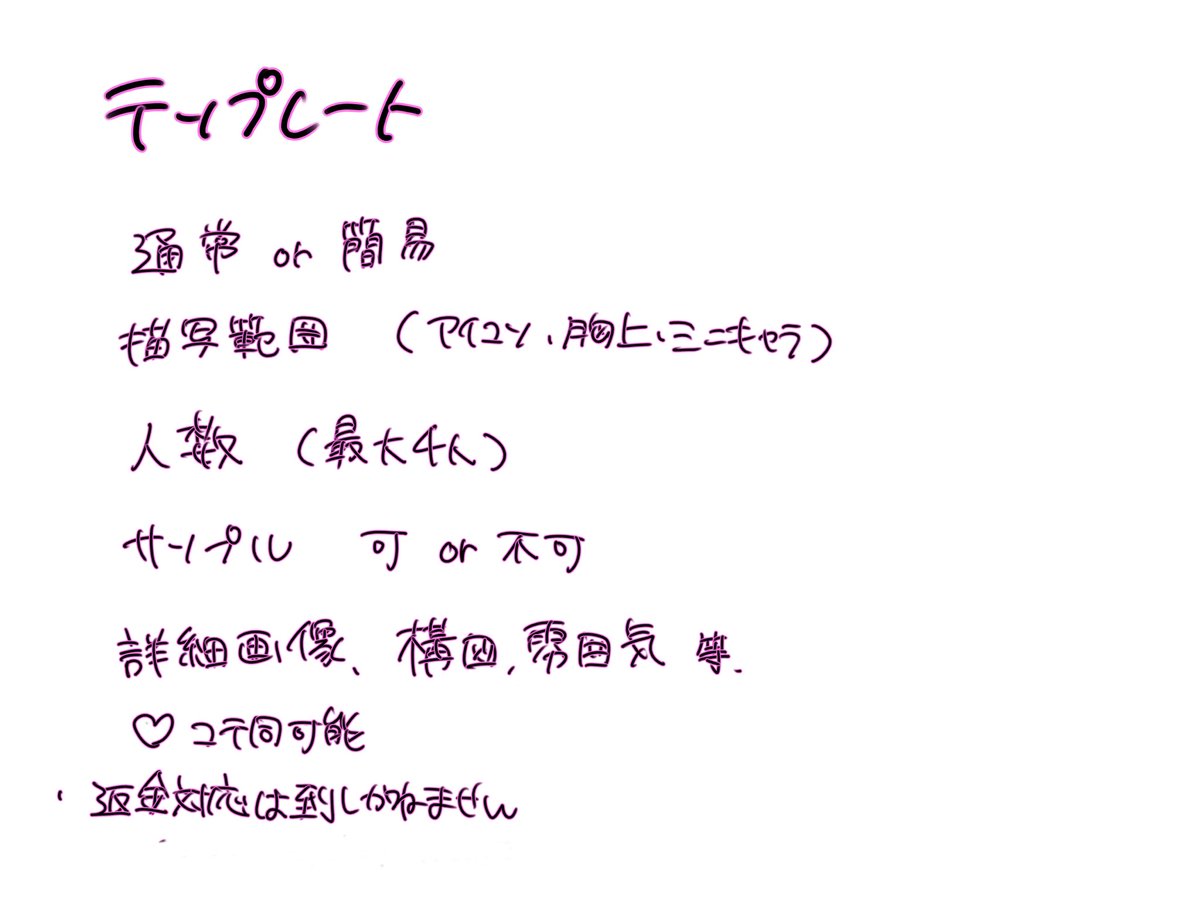 テンプレート
通常 or 簡易
描写範囲 (アイコン、胸上、ミニキャラ)
人数 (最大4人)
サンプル 可 or 不可
詳細画像、構図、雰囲気 等.
♡ コテ同可能
・返金対応は到しかねません